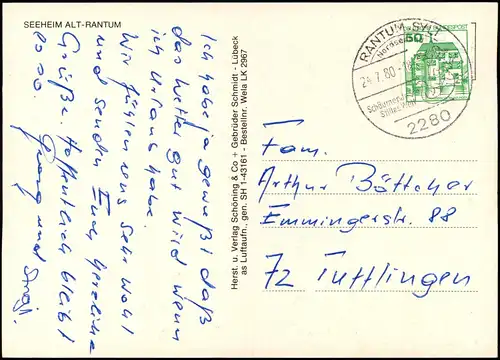 SEEHEIM ALT-RANTUM
Ich habe ja gewußt daß
das Wetter gut wird wenn
ich Urlaub habe.
Wir fühlen uns sehr wohl
und senden Euch herzliche
Grüße. Hoffentlich bleibt
es so.
und
Herst. u. Verlag Schöning & Co + Gebrüder Schmidt - Lübeck
as Luftaufn., gen. SH 1-43161 - Bestellnr. Wela LK 2967
RANTUM-SYLT
Nordsee
24.7.80
2280
50
Fam.
Arthur Böttcher
Emmingerstr. 88
72 Tuttlingen